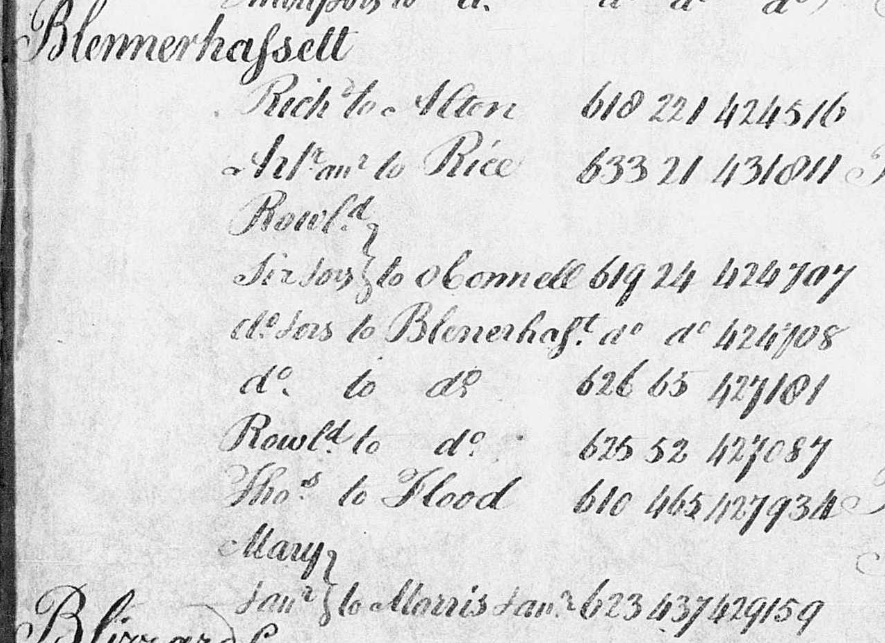 Blennerhassett
Richd to Alton 618 221 424516
Arthr anr to Rice 633 21 431811
Rowld
Sir Jors to OConnell 619 24 424707
do Jors to Blenerhast do do 424708
do to do 626 65 427181
Rowld to do 625 52 427087
Thos to Flood 610 465 427934
Mary
Janr to Morris Janr 623 437 429159